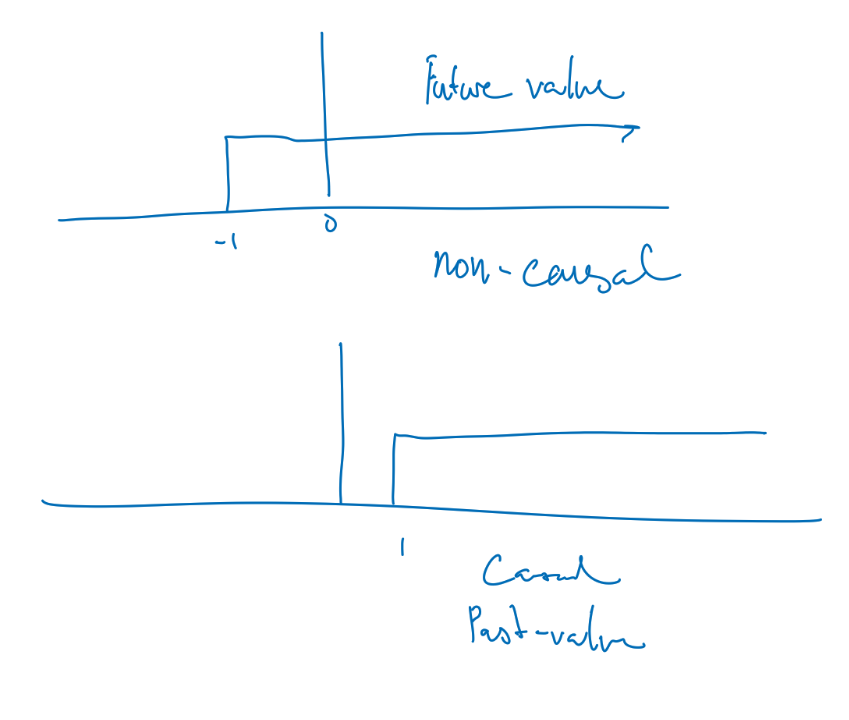 Future value
-1
0
non-causal
1
Casual
Past-value